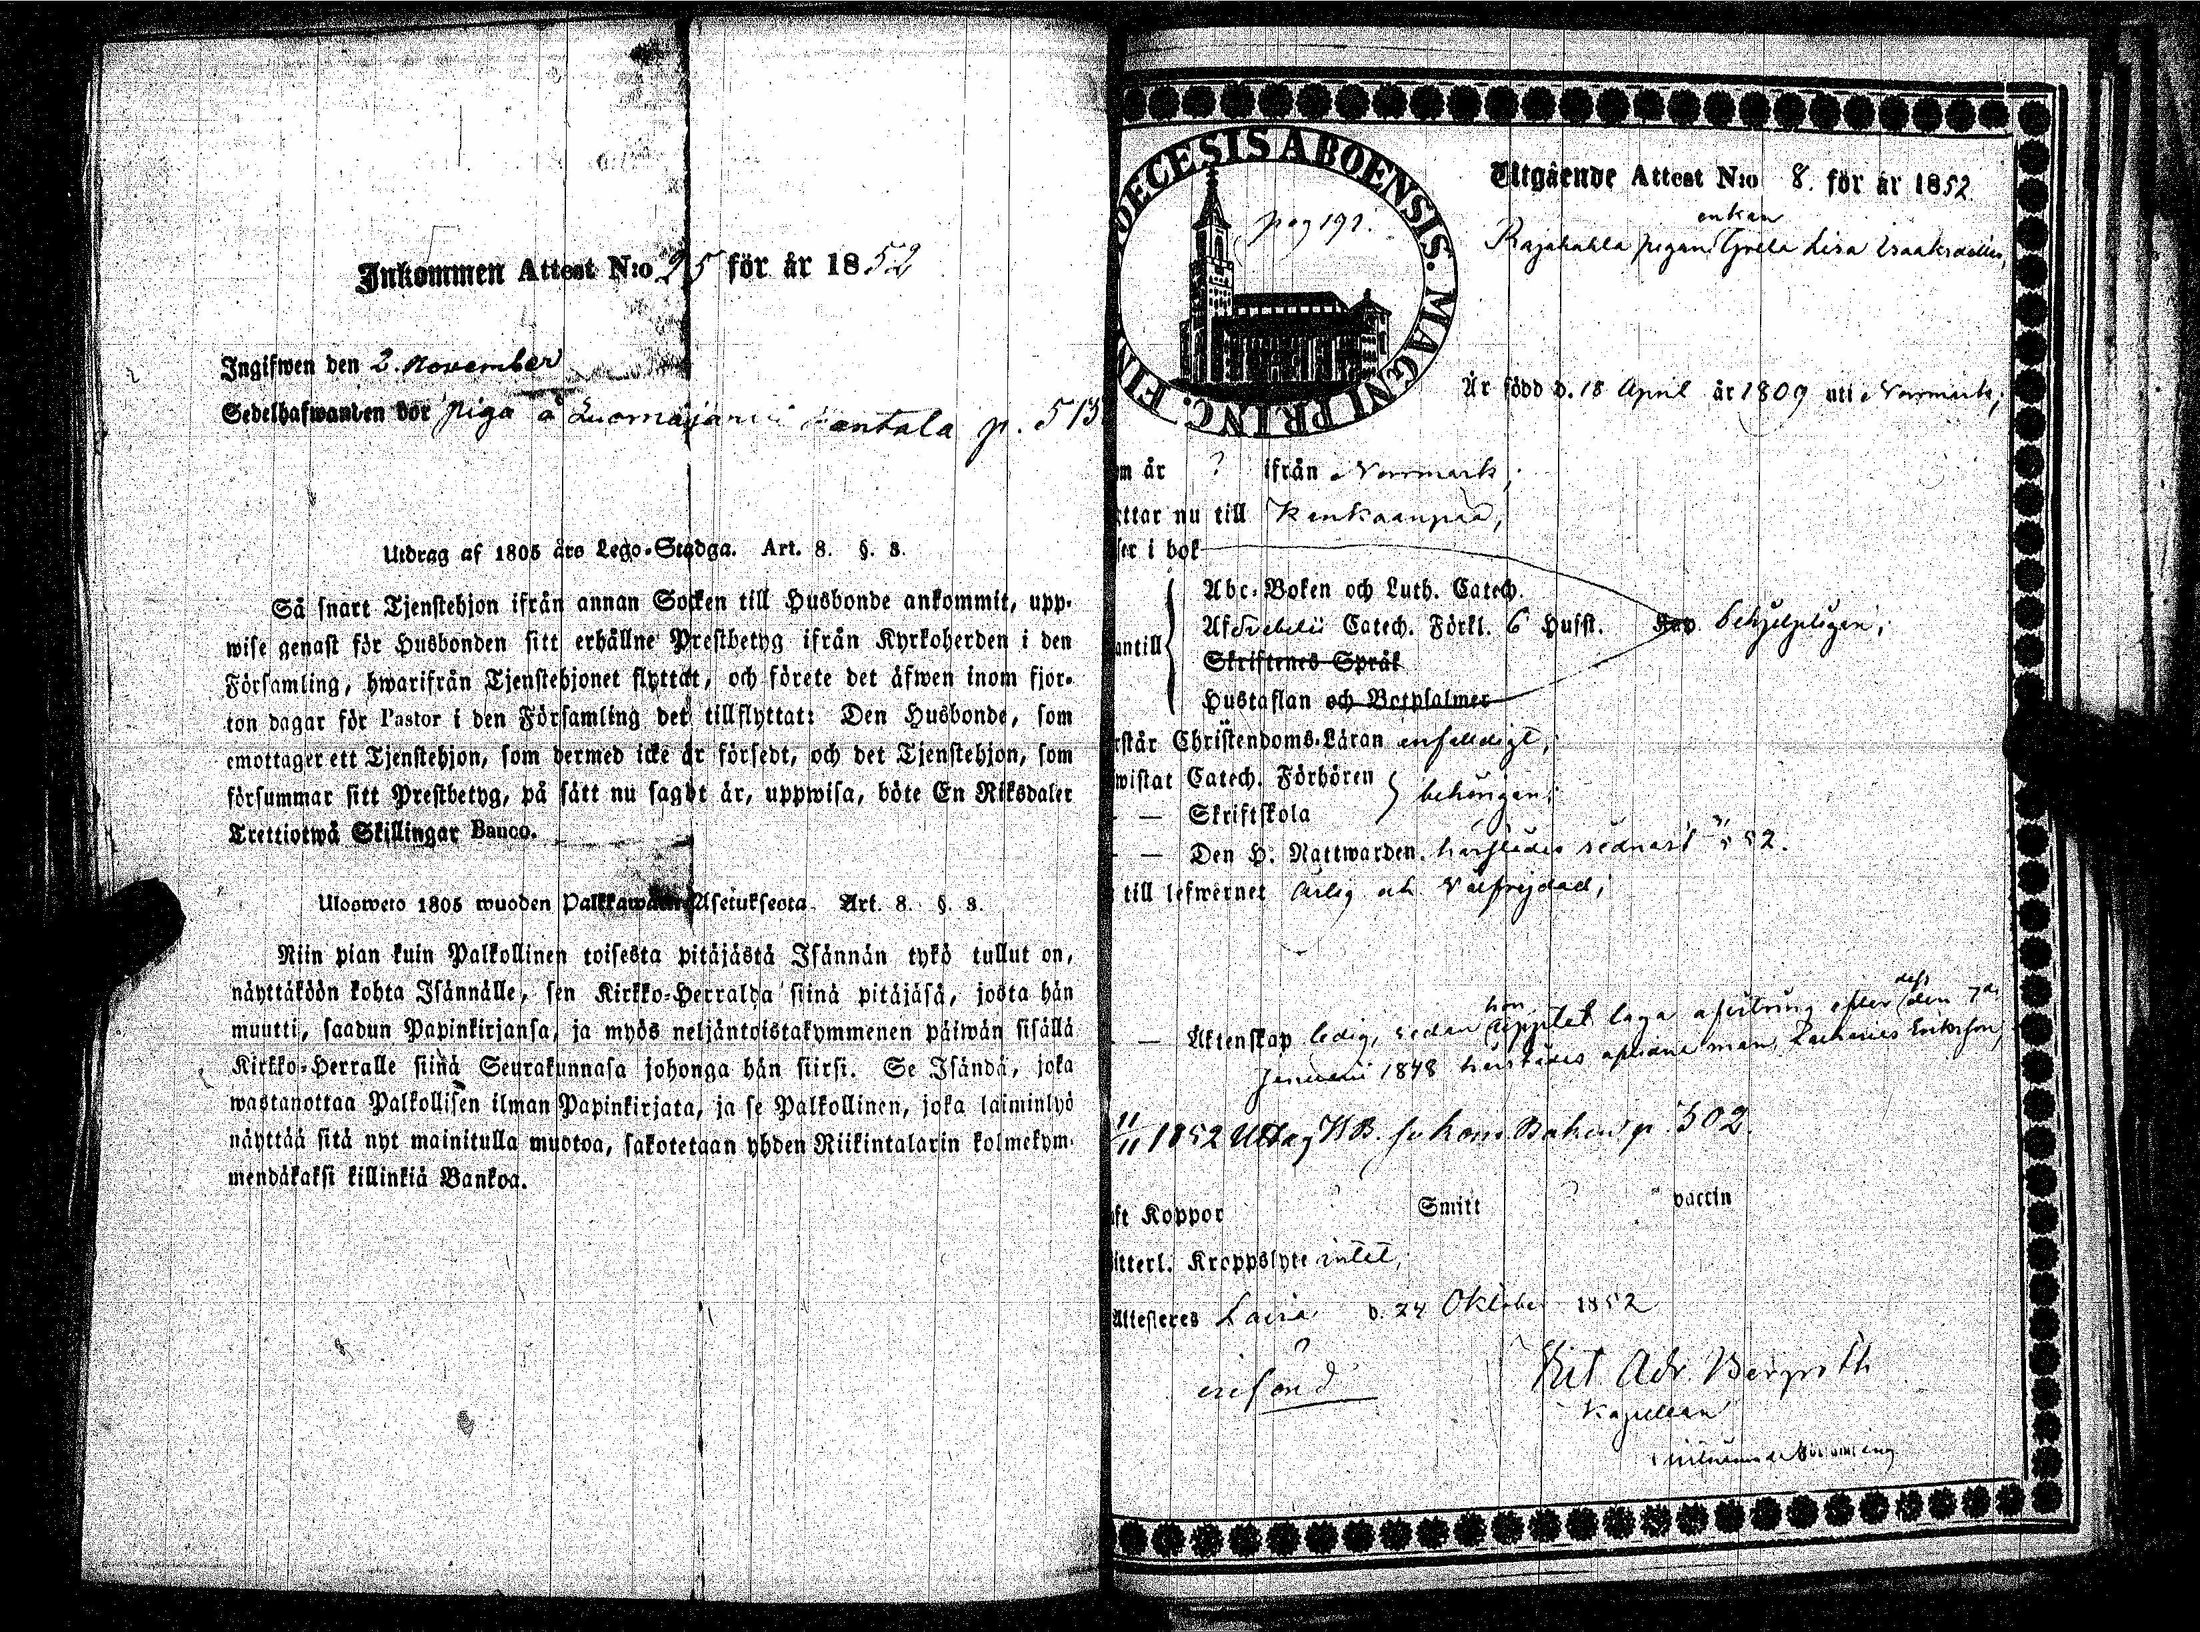 Inkommen Attest N:o 25 för år 1852
Ingifwen den 2. November
Sedelhafwanden bor piga å p. 513
Utdrag af 1805 års Lego-Stadga. Art. 8. §. 3.
Så snart Tjenstehjon ifrån annan Socken till Husbonde ankommit, upp-
wise genast för Husbonden sitt erhållne Prestbetyg ifrån Kyrkoherden i den
Församling, hwarifrån Tjenstehjonet flyttat, och förete det äfwen inom fjor-
ton dagar för Pastor i den Församling det tillflyttat: Den Husbonde, som
emottager ett Tjenstehjon, som dermed icke är försedt, och det Tjenstehjon, som
försummar sitt Prestbetyg, på sätt nu sagdt är, uppwisa, böte En Riksdaler
Trettiotwå Skillingar Banco.
Ulosweto 1805 wuoden Palkkawäen Asetuksesta Art. 8. §. 3.
Niin pian kuin Palkollinen toisesta pitäjästä Isännän tykö tullut on,
näyttäköön kohta Isännälle, sen Kirkko-Herralda siinä pitäjäsä, josta hän
muutti, saadun Papinkirjansa, ja myös neljäntoistakymmenen päiwän sisällä
Kirkko-Herralle siinä Seurakunnasa johonga hän siirsi. Se Isändä, joka
wastanottaa Palkollisen ilman Papinkirjata, ja se Palkollinen, joka laiminlyö
näyttää sitä nyt mainitulla muotoa, sakotetaan yhden Riikintalarin kolmekym-
mendäkaksi killinkiä Bankoa.
DECESIS ABOENSIS. MAGNI PRINC. FIN
pag 192.
Utgående Attest N:o 8. för år 1852
enkan
pigan Greta Lisa Isaaksdotter,
Är född d. 18 April år 1809 uti Norrmark,
om år ? ifrån Norrmark,
ttar nu till Kankaanpää,
ser i bok
Abc-Boken och Luth. Catech.
Af Svebelii Catech. Förkl. 6 Husst. behjelpligen,
antill
Skriftenes Språk
Hustaflan och Botpsalmer
rstår Christendoms-Läran enfaldigt,
wistat Catech. Förhören
behörigen,
— Skriftskola
— Den H. Nattwarden. härstädes sednast 52.
till lefwernet ärlig och välfrejdad,
— Äktenskap ledig, sedan hon laga afvittring efter dess den 7de
Januarii 1848 härstädes aflidne man, Zacharias Eriksson,
11/11 1852 Uttag p. 502.
ft Koppor ? Smitt ? vaccin
itterl. Kroppslyte intet,
Attesteres Lavia d. 24 Oktober 1852
Adr. Bergroth
Kapellan